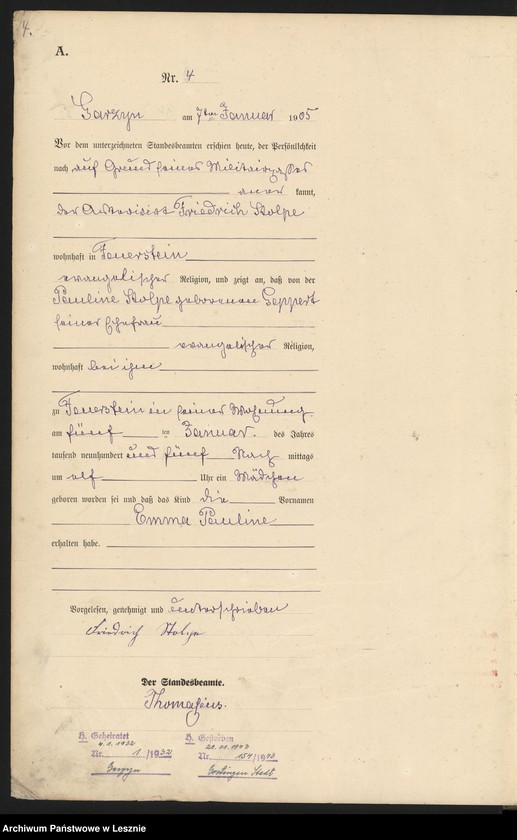 4.
A.
Nr. 4
Garzyn am 7ten Januar 1905
Vor dem unterzeichneten Standesbeamten erschien heute, der Persönlichkeit
nach auf Grund seines Militairpasses
aner kannt,
der Friedrich Stolpe
wohnhaft in Feuerstein
evangelischer Religion, und zeigt an, daß von der
Pauline Stolpe geborenen Geppert
seiner Ehefrau
evangelischer Religion,
wohnhaft bei ihm
zu Feuerstein in seiner Wohnung
am fünf ten Januar. des Jahres
tausend neunhundert und fünf Nach mittags
um elf Uhr ein Mädchen
geboren worden sei und daß das Kind die Vornamen
Emma Pauline
erhalten habe.
Vorgelesen, genehmigt und unterschrieben
Friedrich Stolpe
Der Standesbeamte.
Thomasius.
H. Geheiratet
4.1.1932
Nr. 1/1932
Garzyn
H. Gestorben
Nr. 154/1943
Archiwum Państwowe w Lesznie